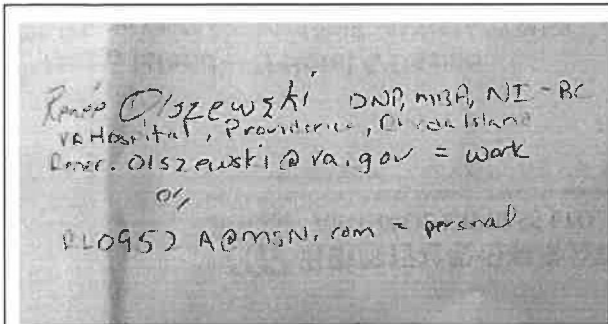 Olszewski DNP, MBA, NI-BC
VA Hospital, Providence, Rhode Island
Olszewski@va.gov = work
or
A@msn.com = personal